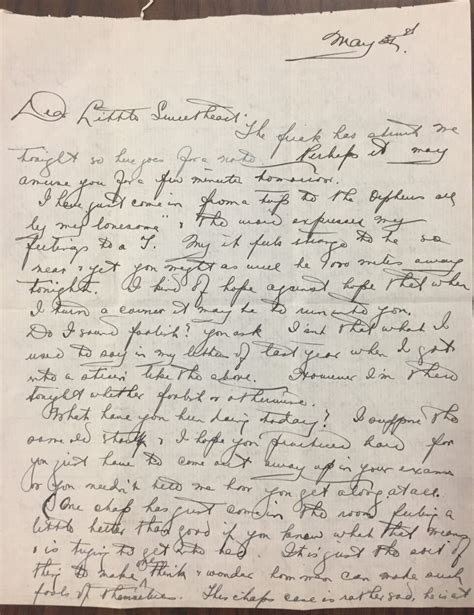 May 31st.
Dear Little Sweetheart:
The has struck me
tonight so here goes for a note. Perhaps it may
amuse you for a few minutes tomorrow.
I have just come in from a trip to the Orpheus all
by my lonesome" & the word expresses my
feelings to a T. My it feels strange to be so
near & yet you might as well be 7000 miles away
tonight. I kind of hope against hope that when
I turn a corner it may be to run into you.
Do I sound foolish? you ask Isn't that what I
used to say in my letters of last year when I got
into a like the above. However I'm there
tonight whether foolish or otherwise.
What have you been doing today? I suppose the
same old & I hope you practiced hard for
you just have to come out away up in your exams
or you needn't tell me how you get along at all.
One chap has just come in the room feeling a
little better than good if you know what that means
& is trying to get into bed. It is just the sort of
thing to make me think & wonder how men can make such
fools of themselves. This chaps case is rather sad, he is at